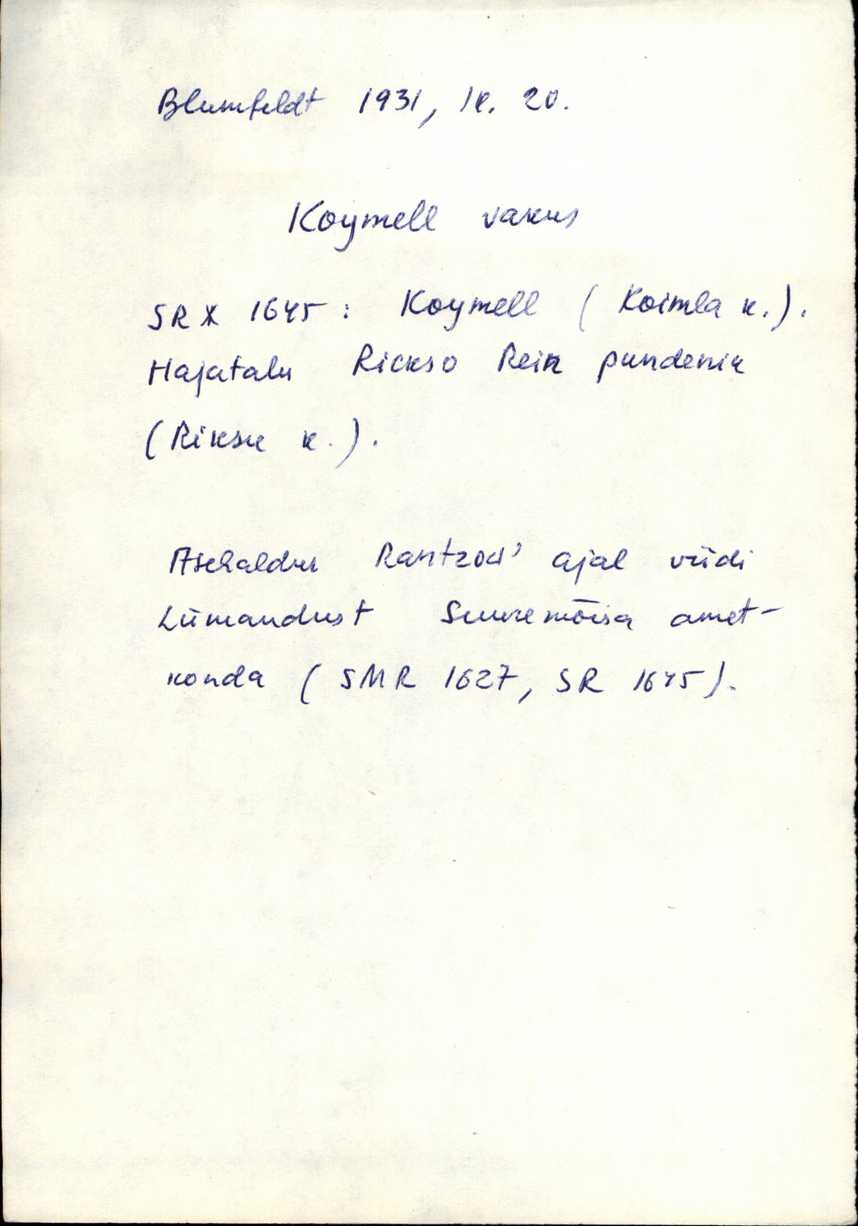 Blumfeldt 1931, lk. 20.
Koymell vakus
SR 1645: Koymell (Koimla k.).
Hajatalu Rickso Rein pundenik
(Riksu k.).
Asehaldur Rantzou' ajal viidi
Lümandust Suuremõisa amet-
konda (SMR 1627, SR 1645).